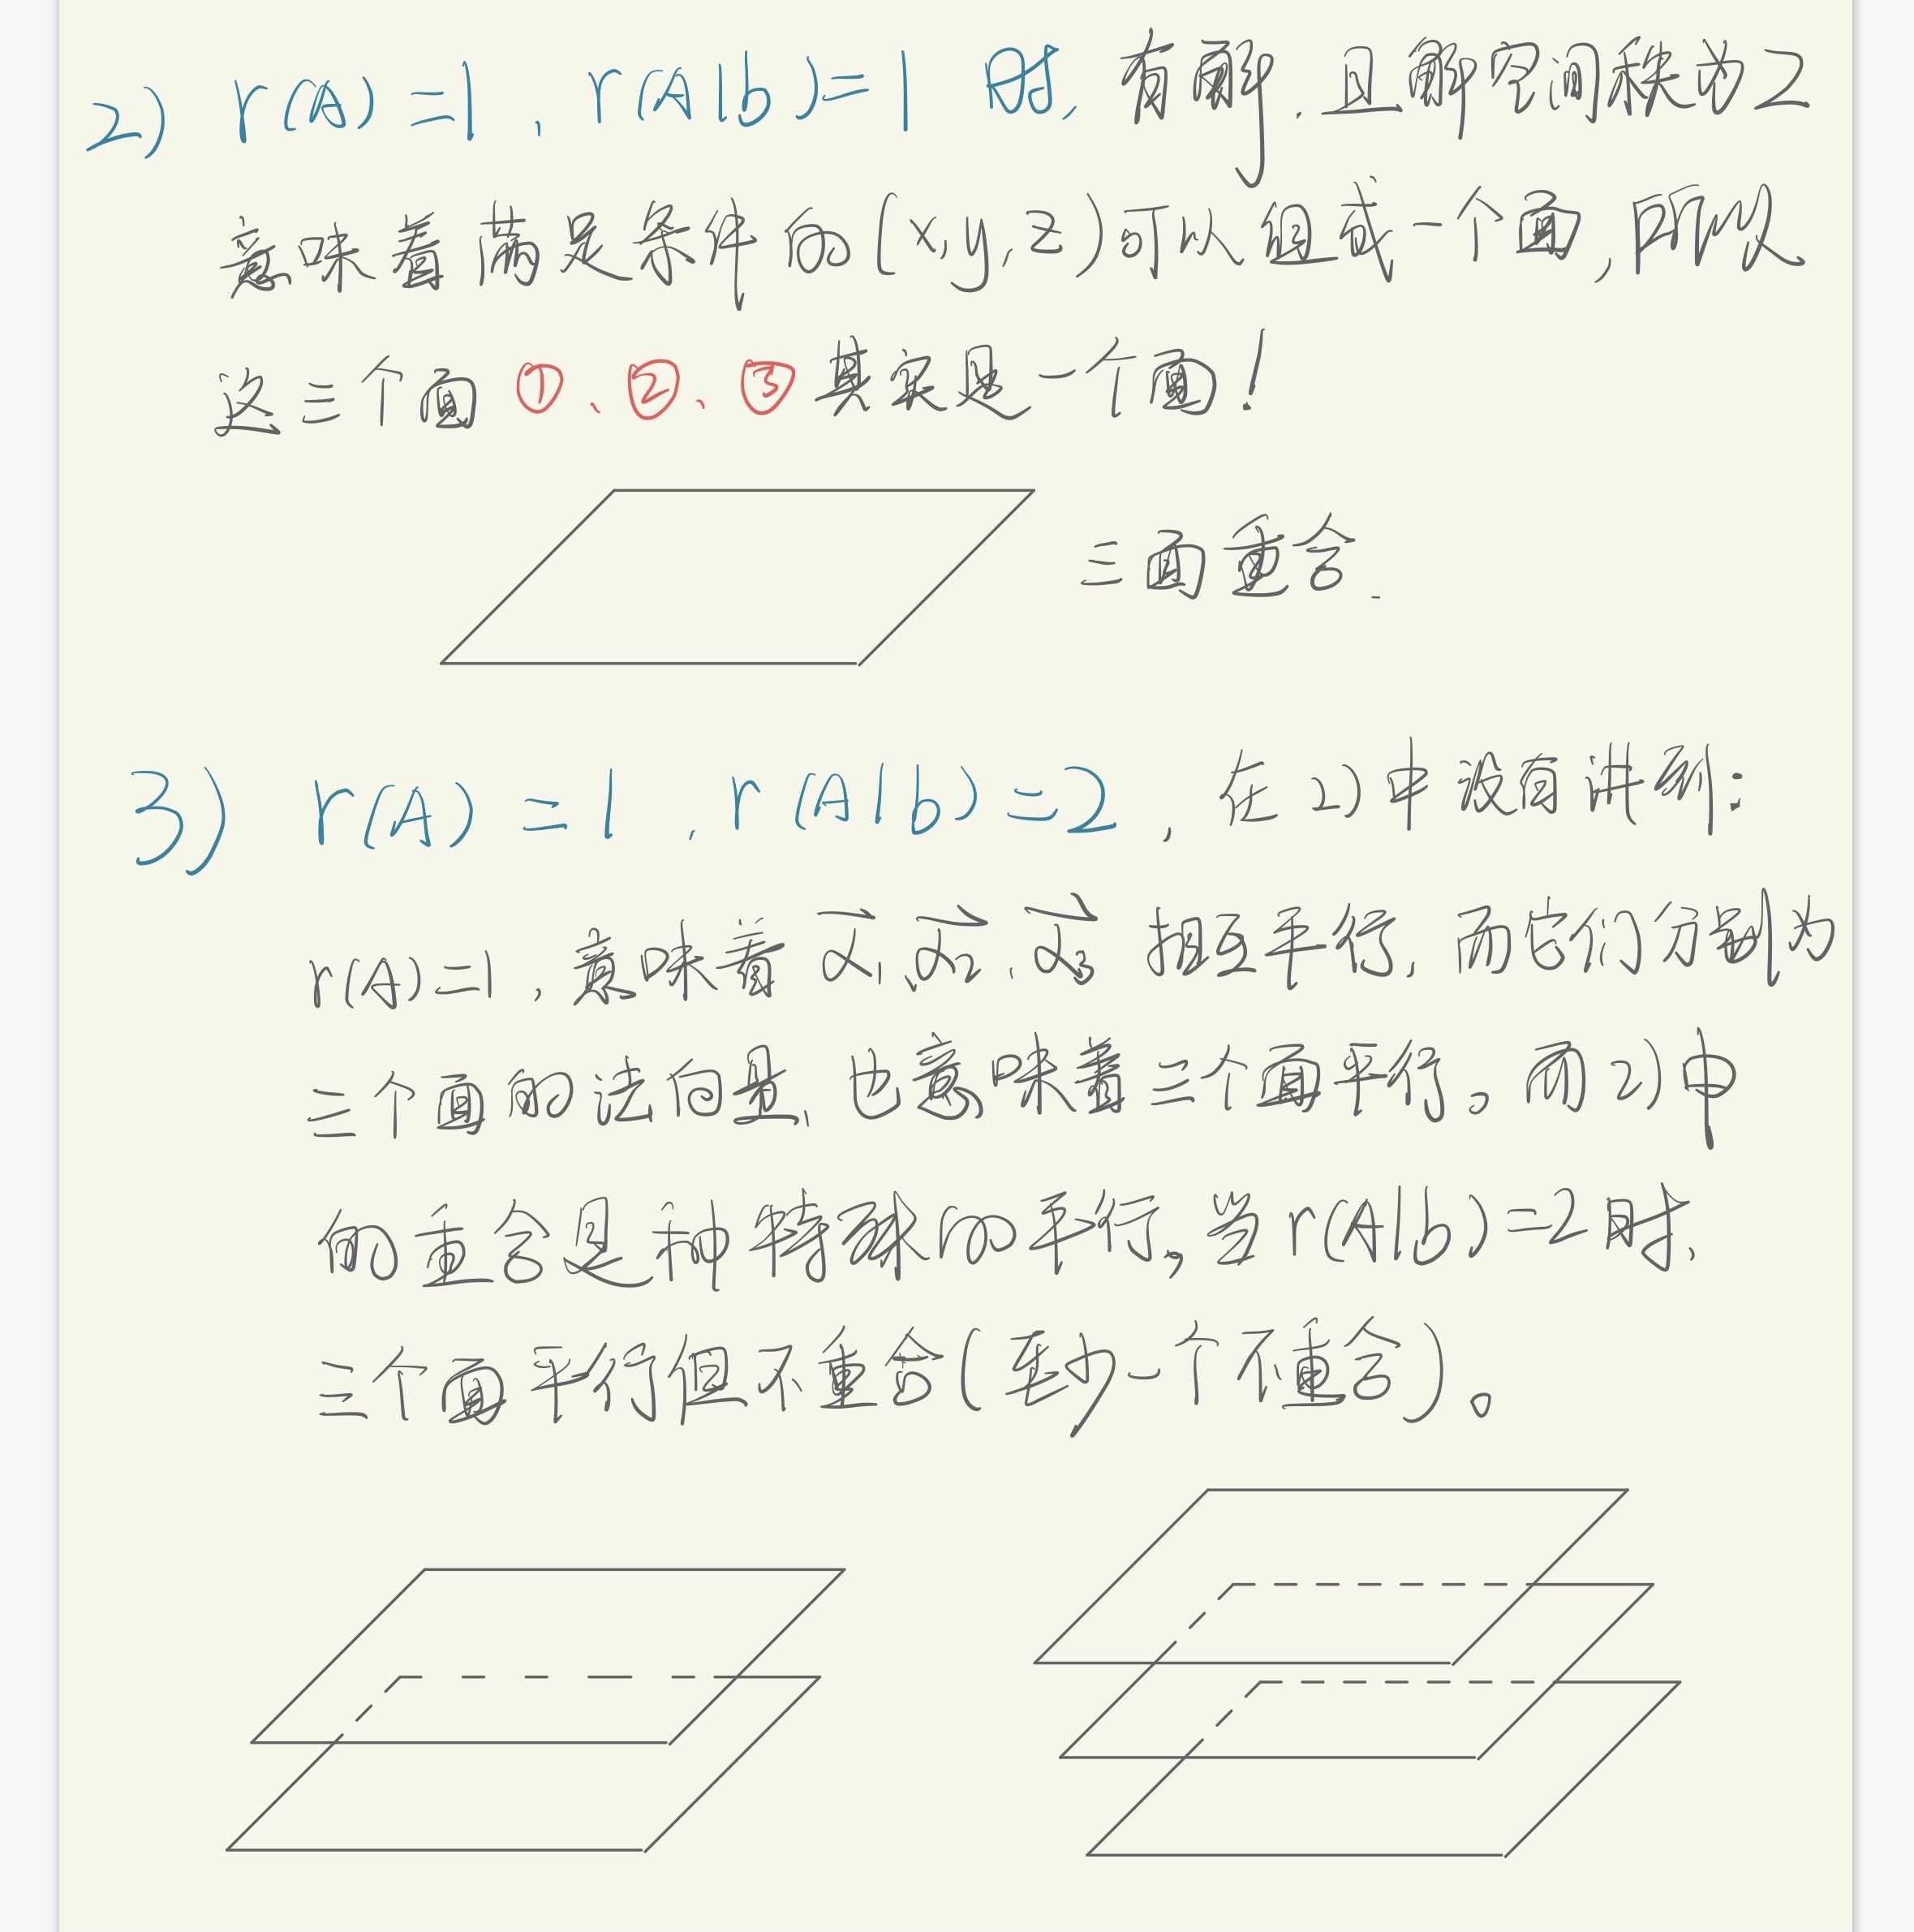 2) r(A)=1, r(A|b)=1 时, 有解, 且解空间秩为2
意味着满足条件的(x,y,z)可以组成一个面,所以
这三个面①、②、③其实是一个面!
三面重合.
3) r(A)=1, r(A|b)=2, 在2)中没有讲到:
r(A)=1, 意味着α₁、α₂、α₃相互平行,而它们分别为
三个面的法向量、也意味着三个面平行。而2)中
的重合是种特殊的平行,当r(A|b)=2时,
三个面平行但不重合(至少一个不重合)。